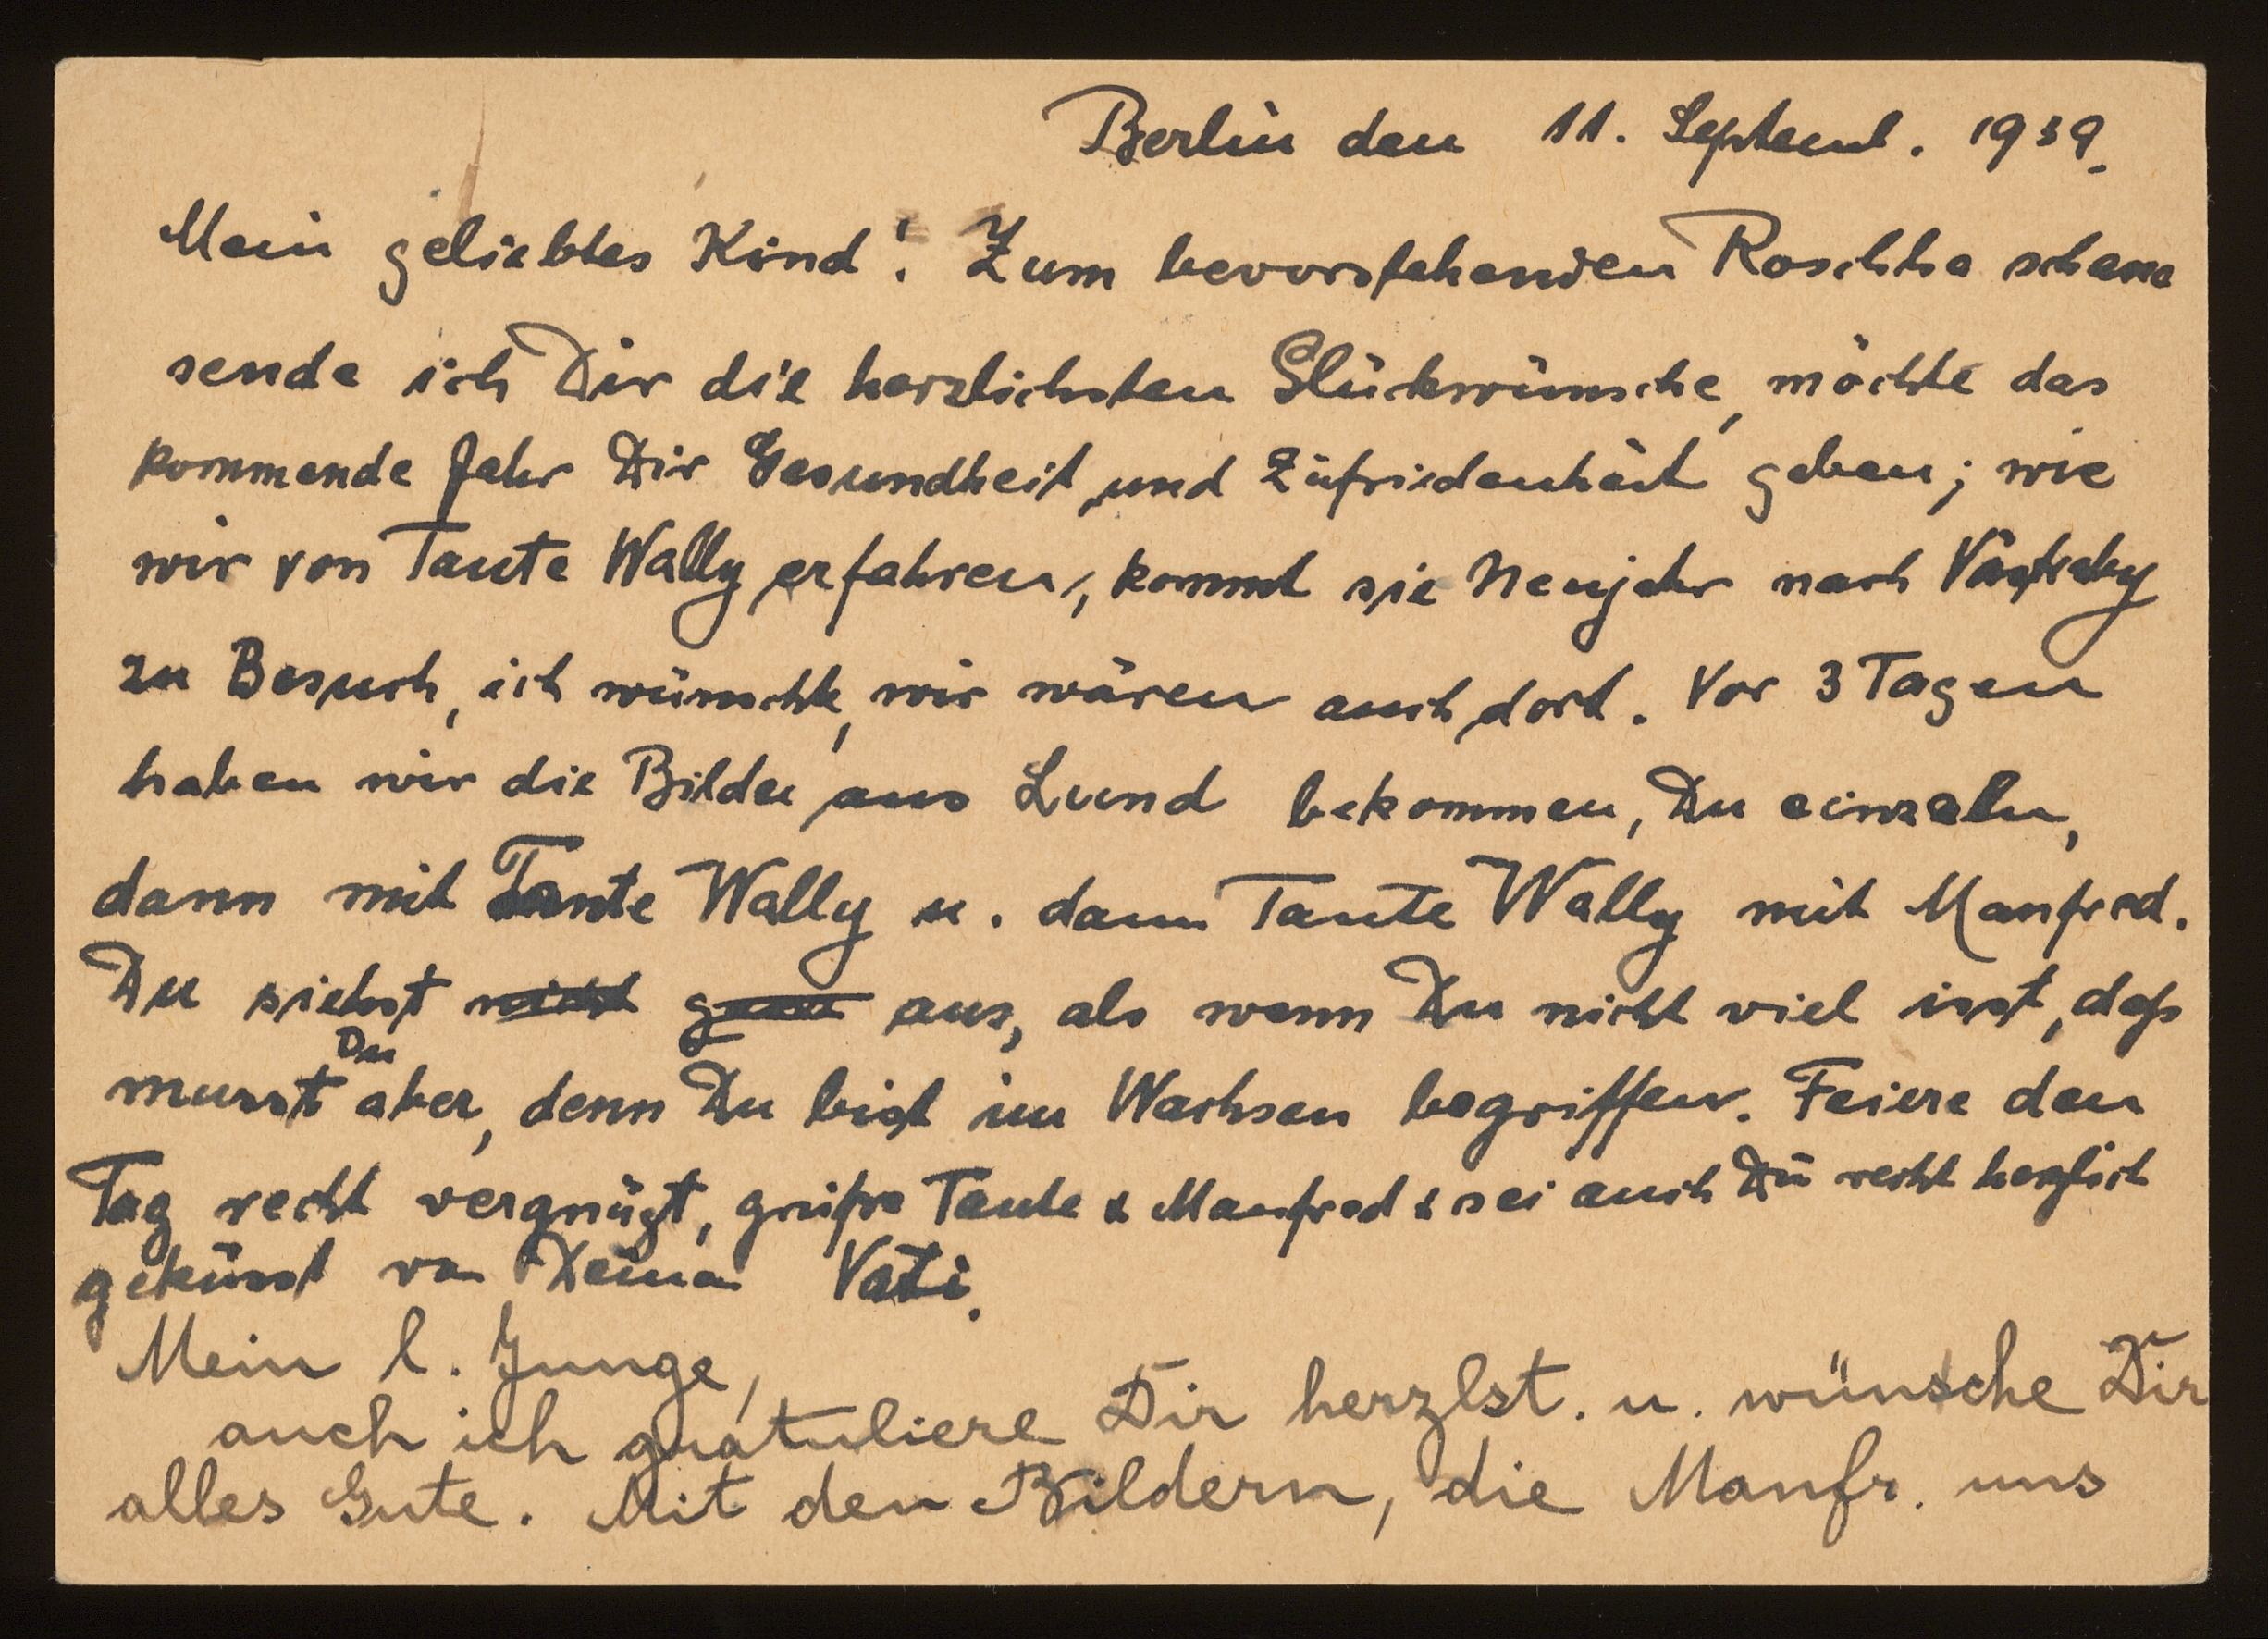 Berlin den 11. Septemb. 1939.
Mein geliebtes Kind! Zum bevorstehenden Roschha schana
sende ich Dir die herzlichsten Glückwünsche, möchte das
kommende Jahr Dir Gesundheit und Zufriedenheit geben; wie
wir von Tante Wally erfahren, kommt sie Neujahr nach Västraby
zu Besuch, ich wünschte, wir wären auch dort. Vor 3 Tagen
haben wir die Bilder aus Lund bekommen, Du einzeln,
dann mit Tante Wally u. dann Tante Wally mit Manfred.
Du siehst nicht aus, als wenn Du nicht viel isst, daß
musst Du aber, denn Du bist im Wachsen begriffen. Feiere den
Tag recht vergnügt, grüße Tante & Manfred & sei auch Du recht herzlich
geküsst von Deinem Vati.
Mein l. Junge,
auch ich gratuliere Dir herzlst. u. wünsche Dir
alles Gute. Mit den Bildern, die Manfr. uns